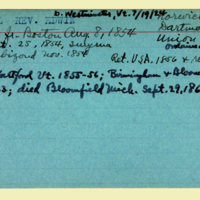 REV. EDWIN
b. Westminster, Vt. 7/19/24
Norwich
Dartmo
Union
ordaine
Boston Aug. 8, 1854
t. 25, 1854,
Nov. 1854
Ret. U.S.A. 1856 &
artford Vt. 1855-56; Birmingham & Bloom
3; died Bloomfield Mich. Sept. 29, 186